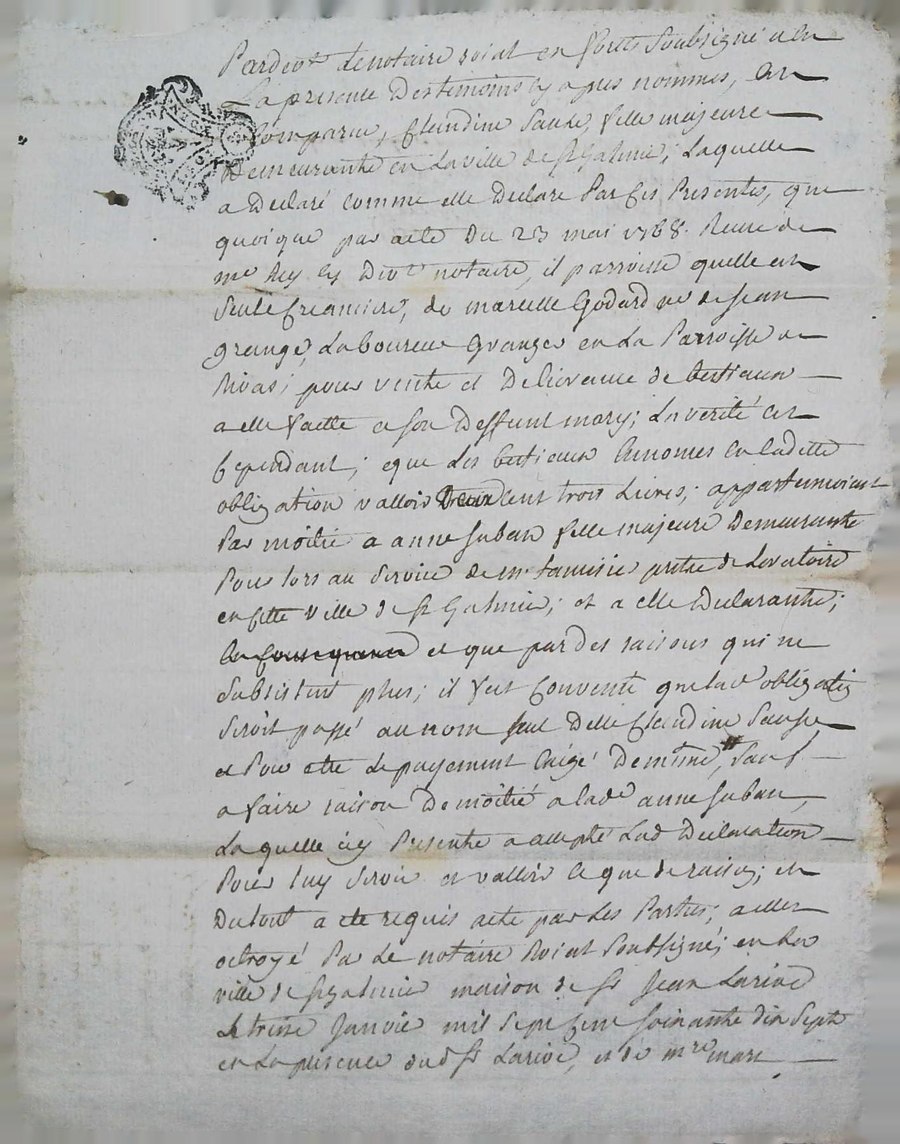 Pardevt le notaire roial en forets soubsigné et en
La presence des temoins cy apres nommés, est
Comparue, Claudine Sause, fille majeure
Demeurante en La ville de St Galmier; Laquelle
a Declaré comme elle Declare Par ces Presentes, que
quoique par acte Du 23 mai 1768. Receu de
me Rey cy devt notaire, il parroisse quelle est
seule creanciere, de marcelle Godard ve de jean
grange, Laboureur Granger en La Parroisse de
Rivas; pour vente et Delivrance de bestiaux
a elle faitte a son Deffunt mary; La verité est
Cependant; que Les bestiaux enomés en Laditte
obligation valloir cent trois Livres; appartenoient
Par moitié a anne juban fille majeure Demeurante
Pour lors au service de mr pretre de Loratoire
en cette ville de St Galmier; et a elle Declarante;
et que par des raisons qui ne
subsistent plus; il fut Convenu que lad obligation
seroit passé au nom seul Delle Claudine Sause
et Pour etre Le payement Exigé De meme, sauf
a faire raison De moitié a lade anne juban,
Laquelle icy Presente a accepté Lad Declaration
Pour luy servir et valloir ce que de raison; et
Dutout a ete requis acte par Les Parties; a elles
octroyé Par Le notaire Roial soubsigné; en La
ville de St galmier maison de Sr Jean Larive
Le treize Janvier mil sept cent soixante dix sept
en La presence dudt Sr Larive, et de mre marc